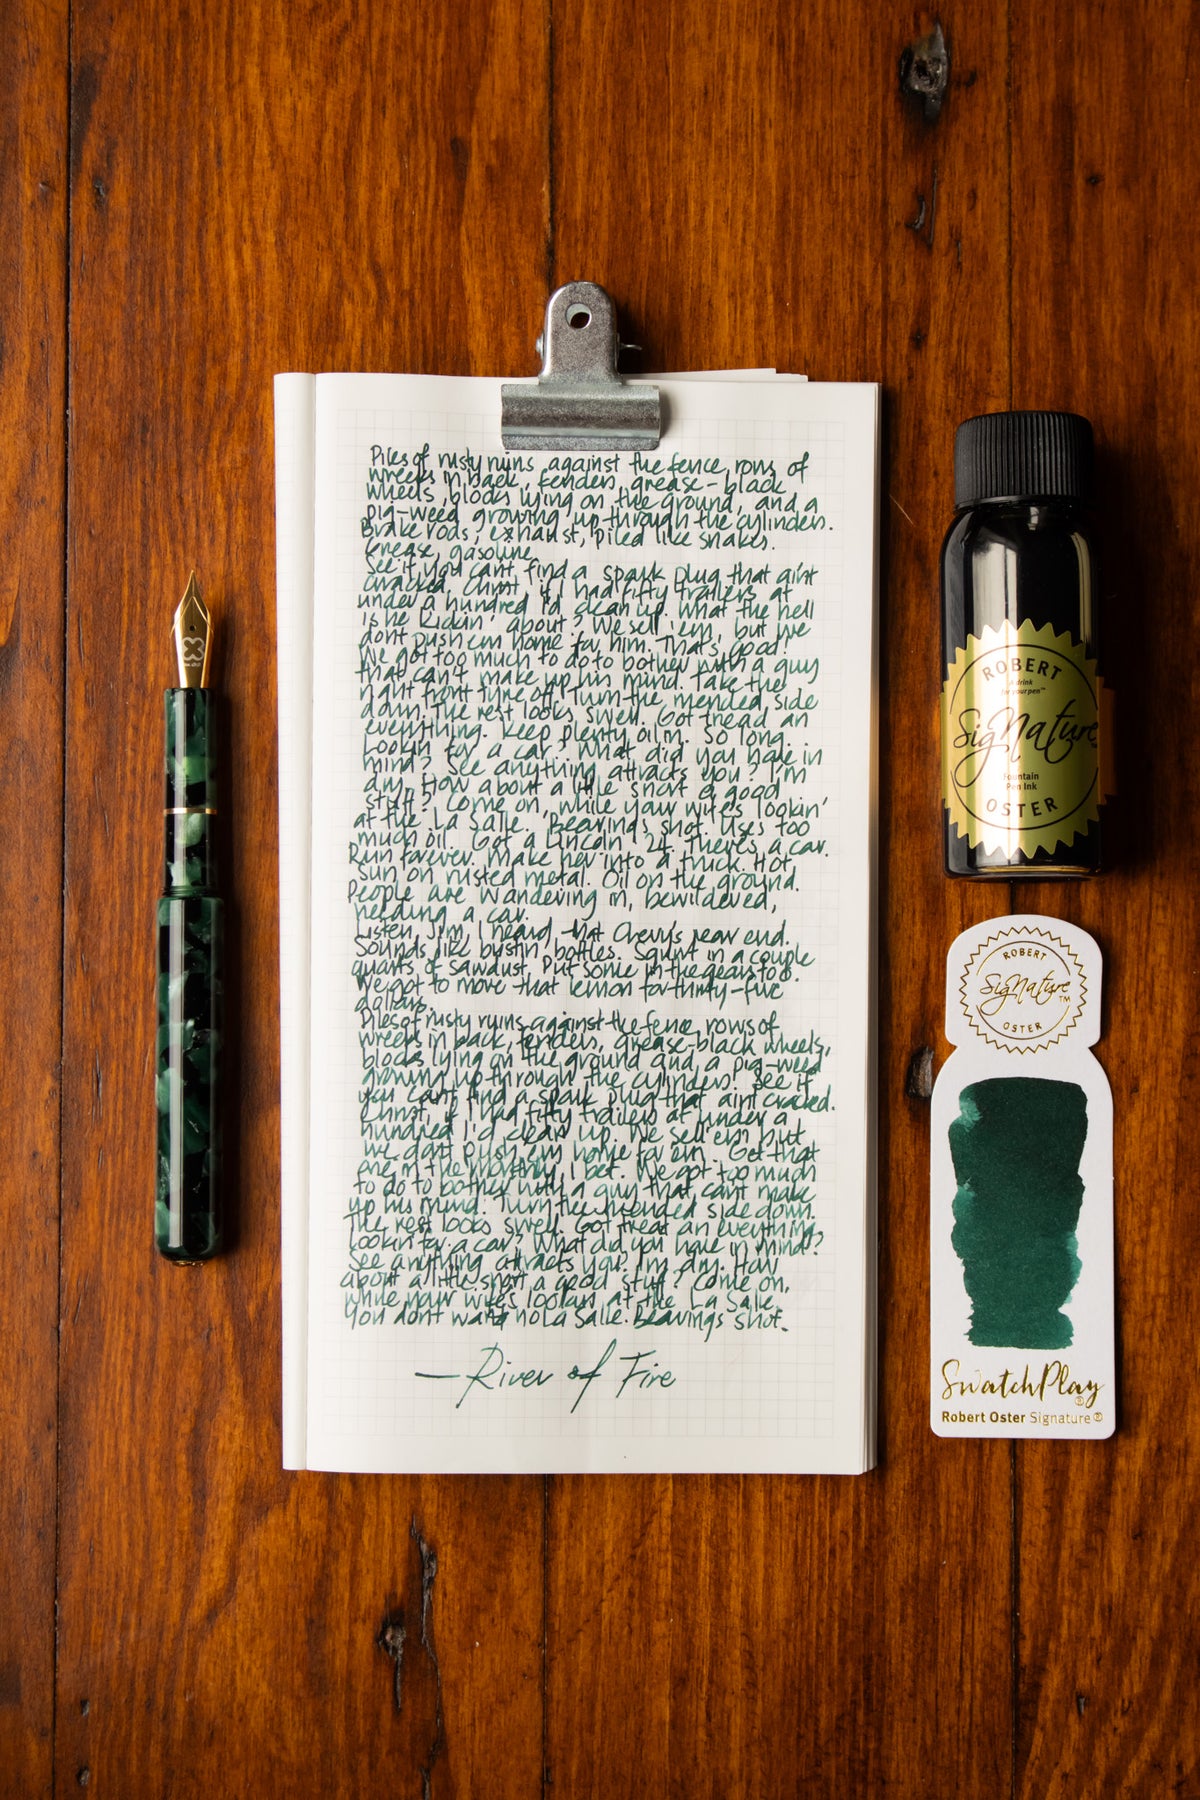 Piles of rusty ruins against the fence, rows of
wrecks in back, fenders, grease-black
wheels, blocks lying on the ground, and a
pig-weed growing up through the cylinders.
Brake rods, exhaust, piled like snakes.
Grease, gasoline.
See if you cant find a spark plug that aint
cracked. Christ, if I had fifty trailers at
under a hundred I'd clean up. What the hell
is he kickin' about? We sell 'em, but we
dont push em home for him. That's good!
We got too much to do to bother with a guy
that can't make up his mind. Take the
right front tyre off. Turn the mended side
down. The rest looks swell. Got tread an
everything. Keep plenty oil in. So long.
Lookin for a car? What did you have in
mind? See anything attracts you? I'm
dry. How about a little snort a good
stuff? Come on, while your wife's lookin'
at the La Salle. Bearings shot. Uses too
much oil. Got a Lincoln '24. There's a car.
Run forever. Make her into a truck. Hot
sun on rusted metal. Oil on the ground.
People are wandering in, bewildered,
needing a car.
Listen, Jim, I heard that Chevy's rear end.
Sounds like bustin' bottles. Squirt in a couple
quarts of sawdust. Put some in the gears too.
We got to move that lemon for thirty-five
dollars.
Piles of rusty ruins against the fence, rows of
wrecks in back, fenders, grease-black wheels,
blocks lying on the ground and a pig-weed
growing up through the cylinders. See if
you cant find a spark plug that aint cracked.
Christ, if I had fifty trailers at under a
hundred I'd clean up. We sell em but
we dont push em home for em. Get that
one in the monthly, I bet. We got too much
to do to bother with a guy that cant make
up his mind. Turn the mended side down.
The rest looks swell. Got treat an everything.
Lookin for a car? What did you have in mind?
See anything attracts you. I'm dry. How
about a little snort a good stuff? Come on,
while your wife's lookin at the La Salle.
You dont want no La Salle. Bearings shot.
—River of Fire
ROBERT
A drink
for your pen™
SigNature
Fountain
Pen Ink
OSTER
ROBERT
SigNature™
OSTER
SwatchPlay®
Robert Oster Signature®